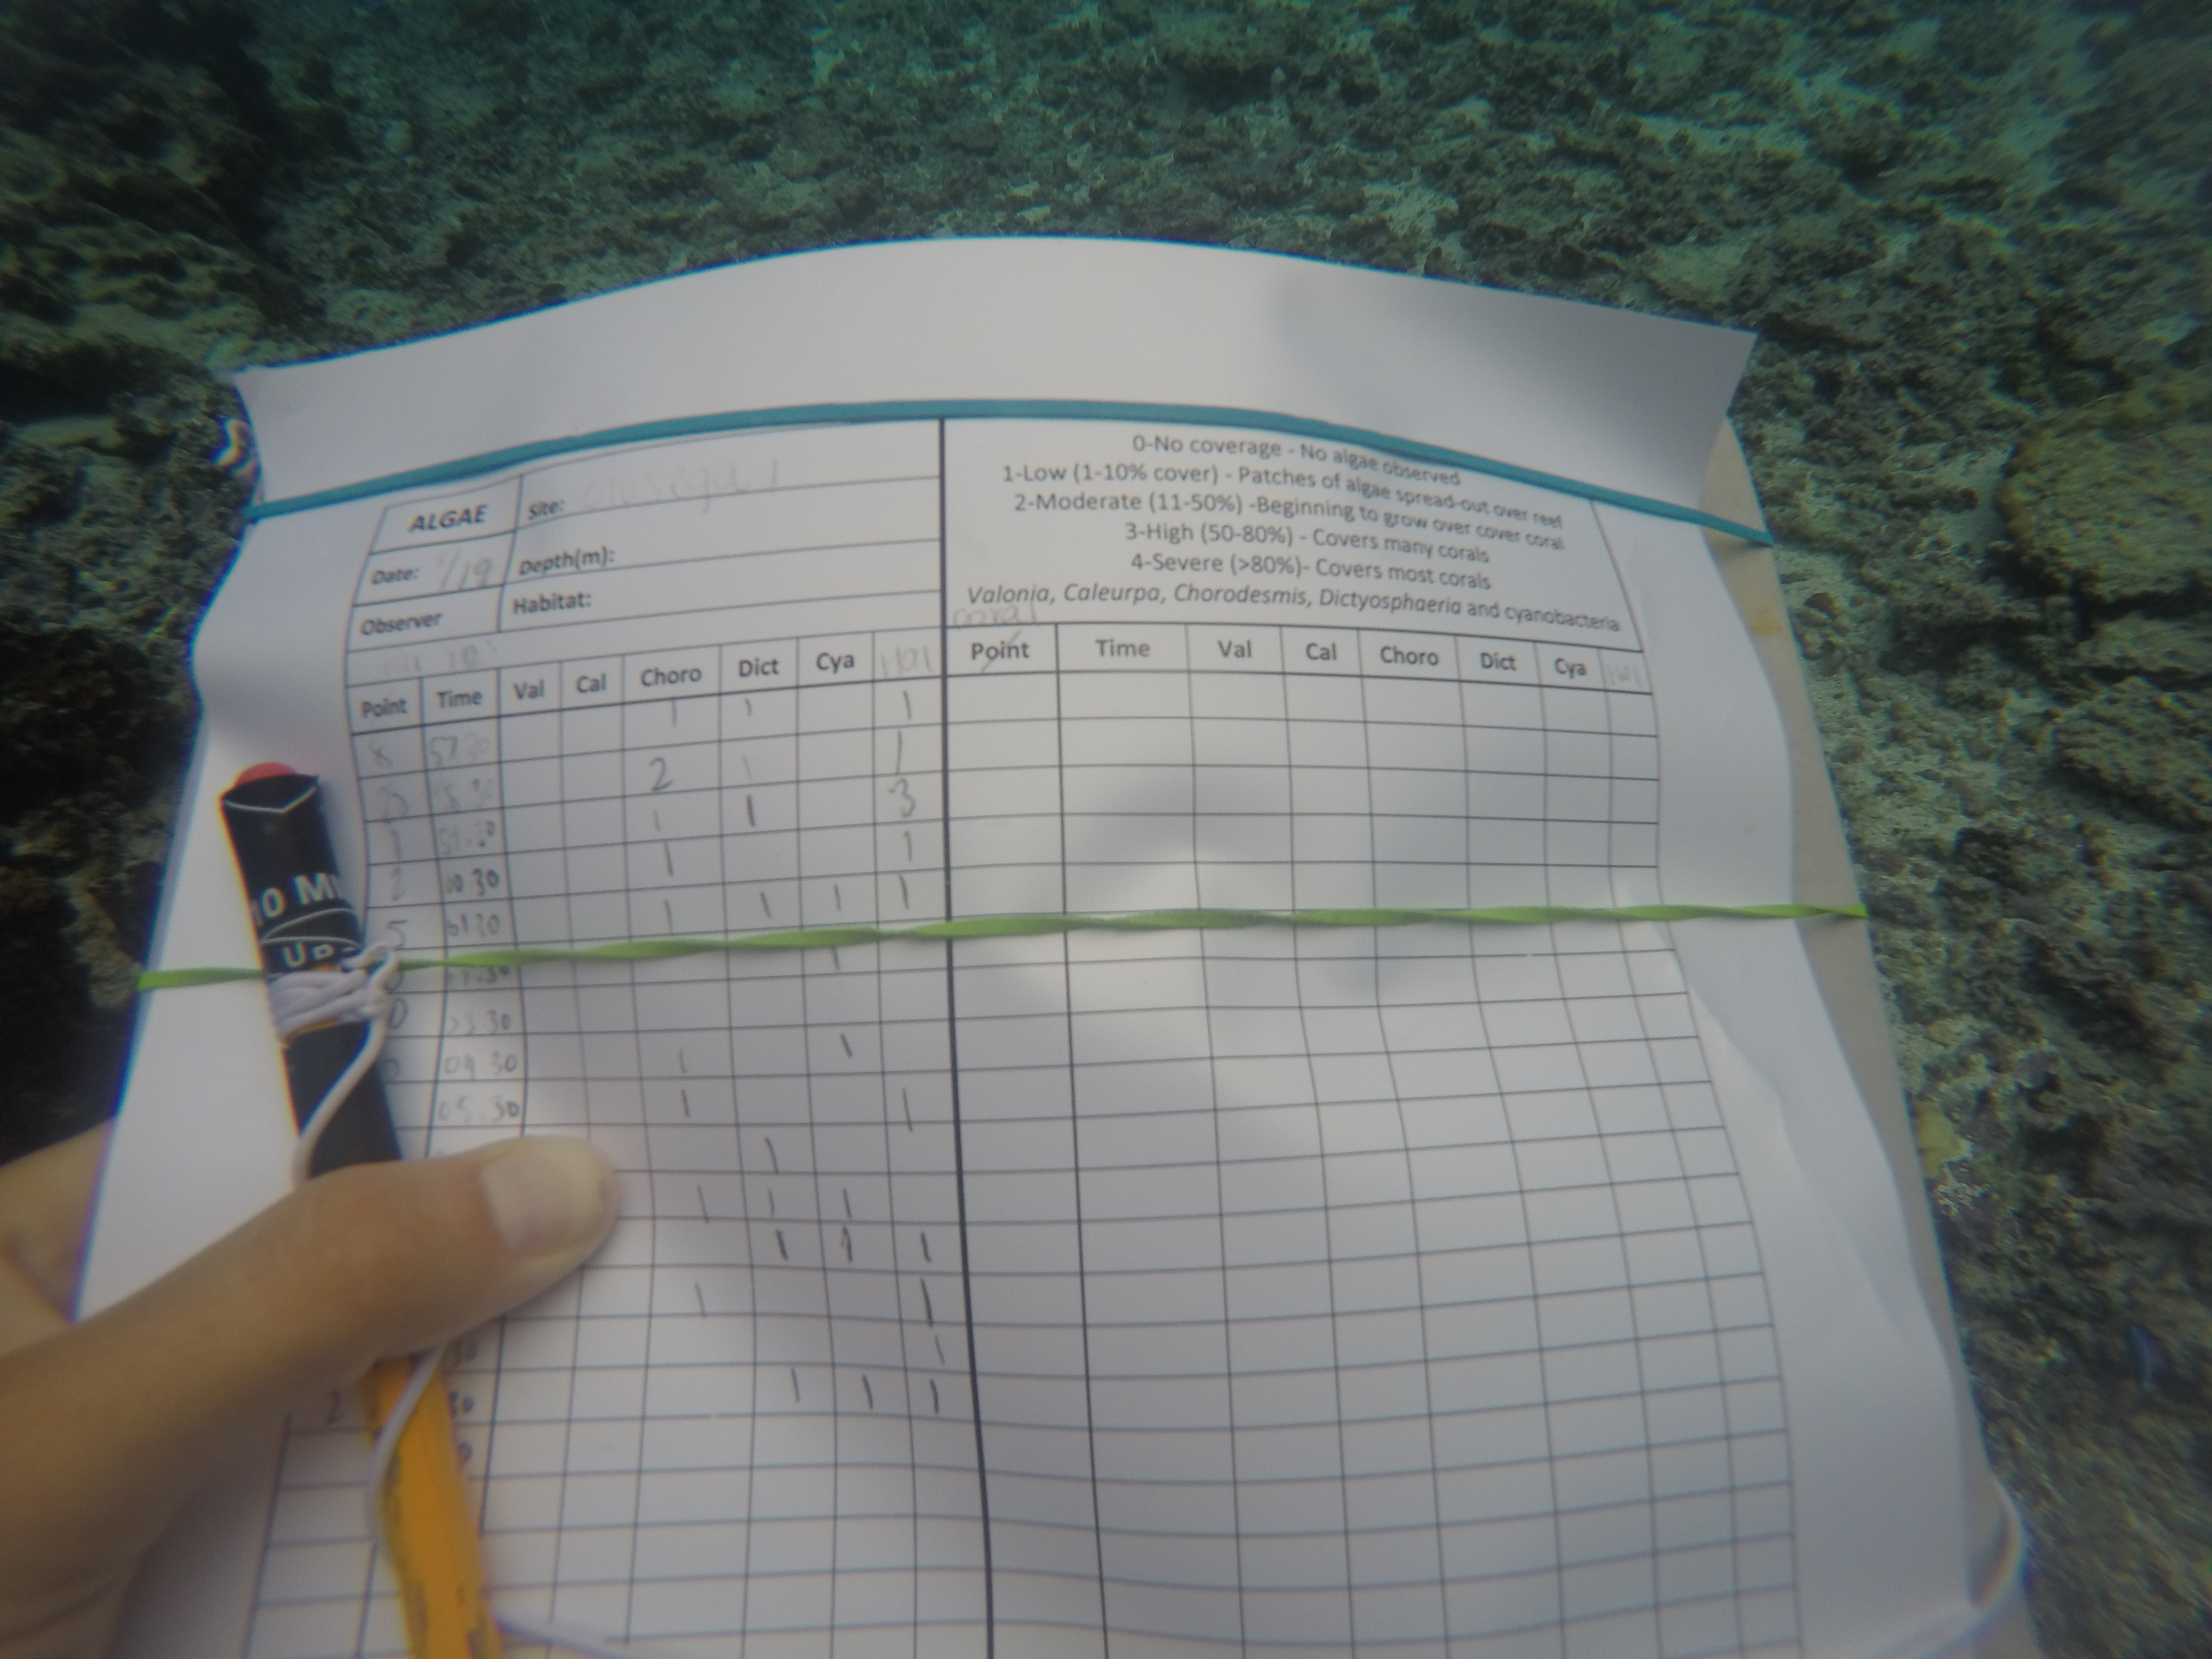 ALGAE
Site: Olosega 1
Date: /19
Depth(m):
Observer
Habitat:
0-No coverage - No algae observed
1-Low (1-10% cover) - Patches of algae spread-out over reef
2-Moderate (11-50%) -Beginning to grow over cover coral
3-High (50-80%) - Covers many corals
4-Severe (>80%)- Covers most corals
Valonia, Caleurpa, Chorodesmis, Dictyosphaeria and cyanobacteria
coral
Point Time Val Cal Choro Dict Cya Hal
Point Time Val Cal Choro Dict Cya Hal
8 57.30 1 1 1
2 1 1
1 59.30 1 1 3
2 00.30 1 1
5 01.30 1 1 1 1
1
0 03.30
04 30 1 1
05.30 1 1
1
1 1 1
1 1 1
1 1
30 1
2 30 1 1 1
10 M
UP